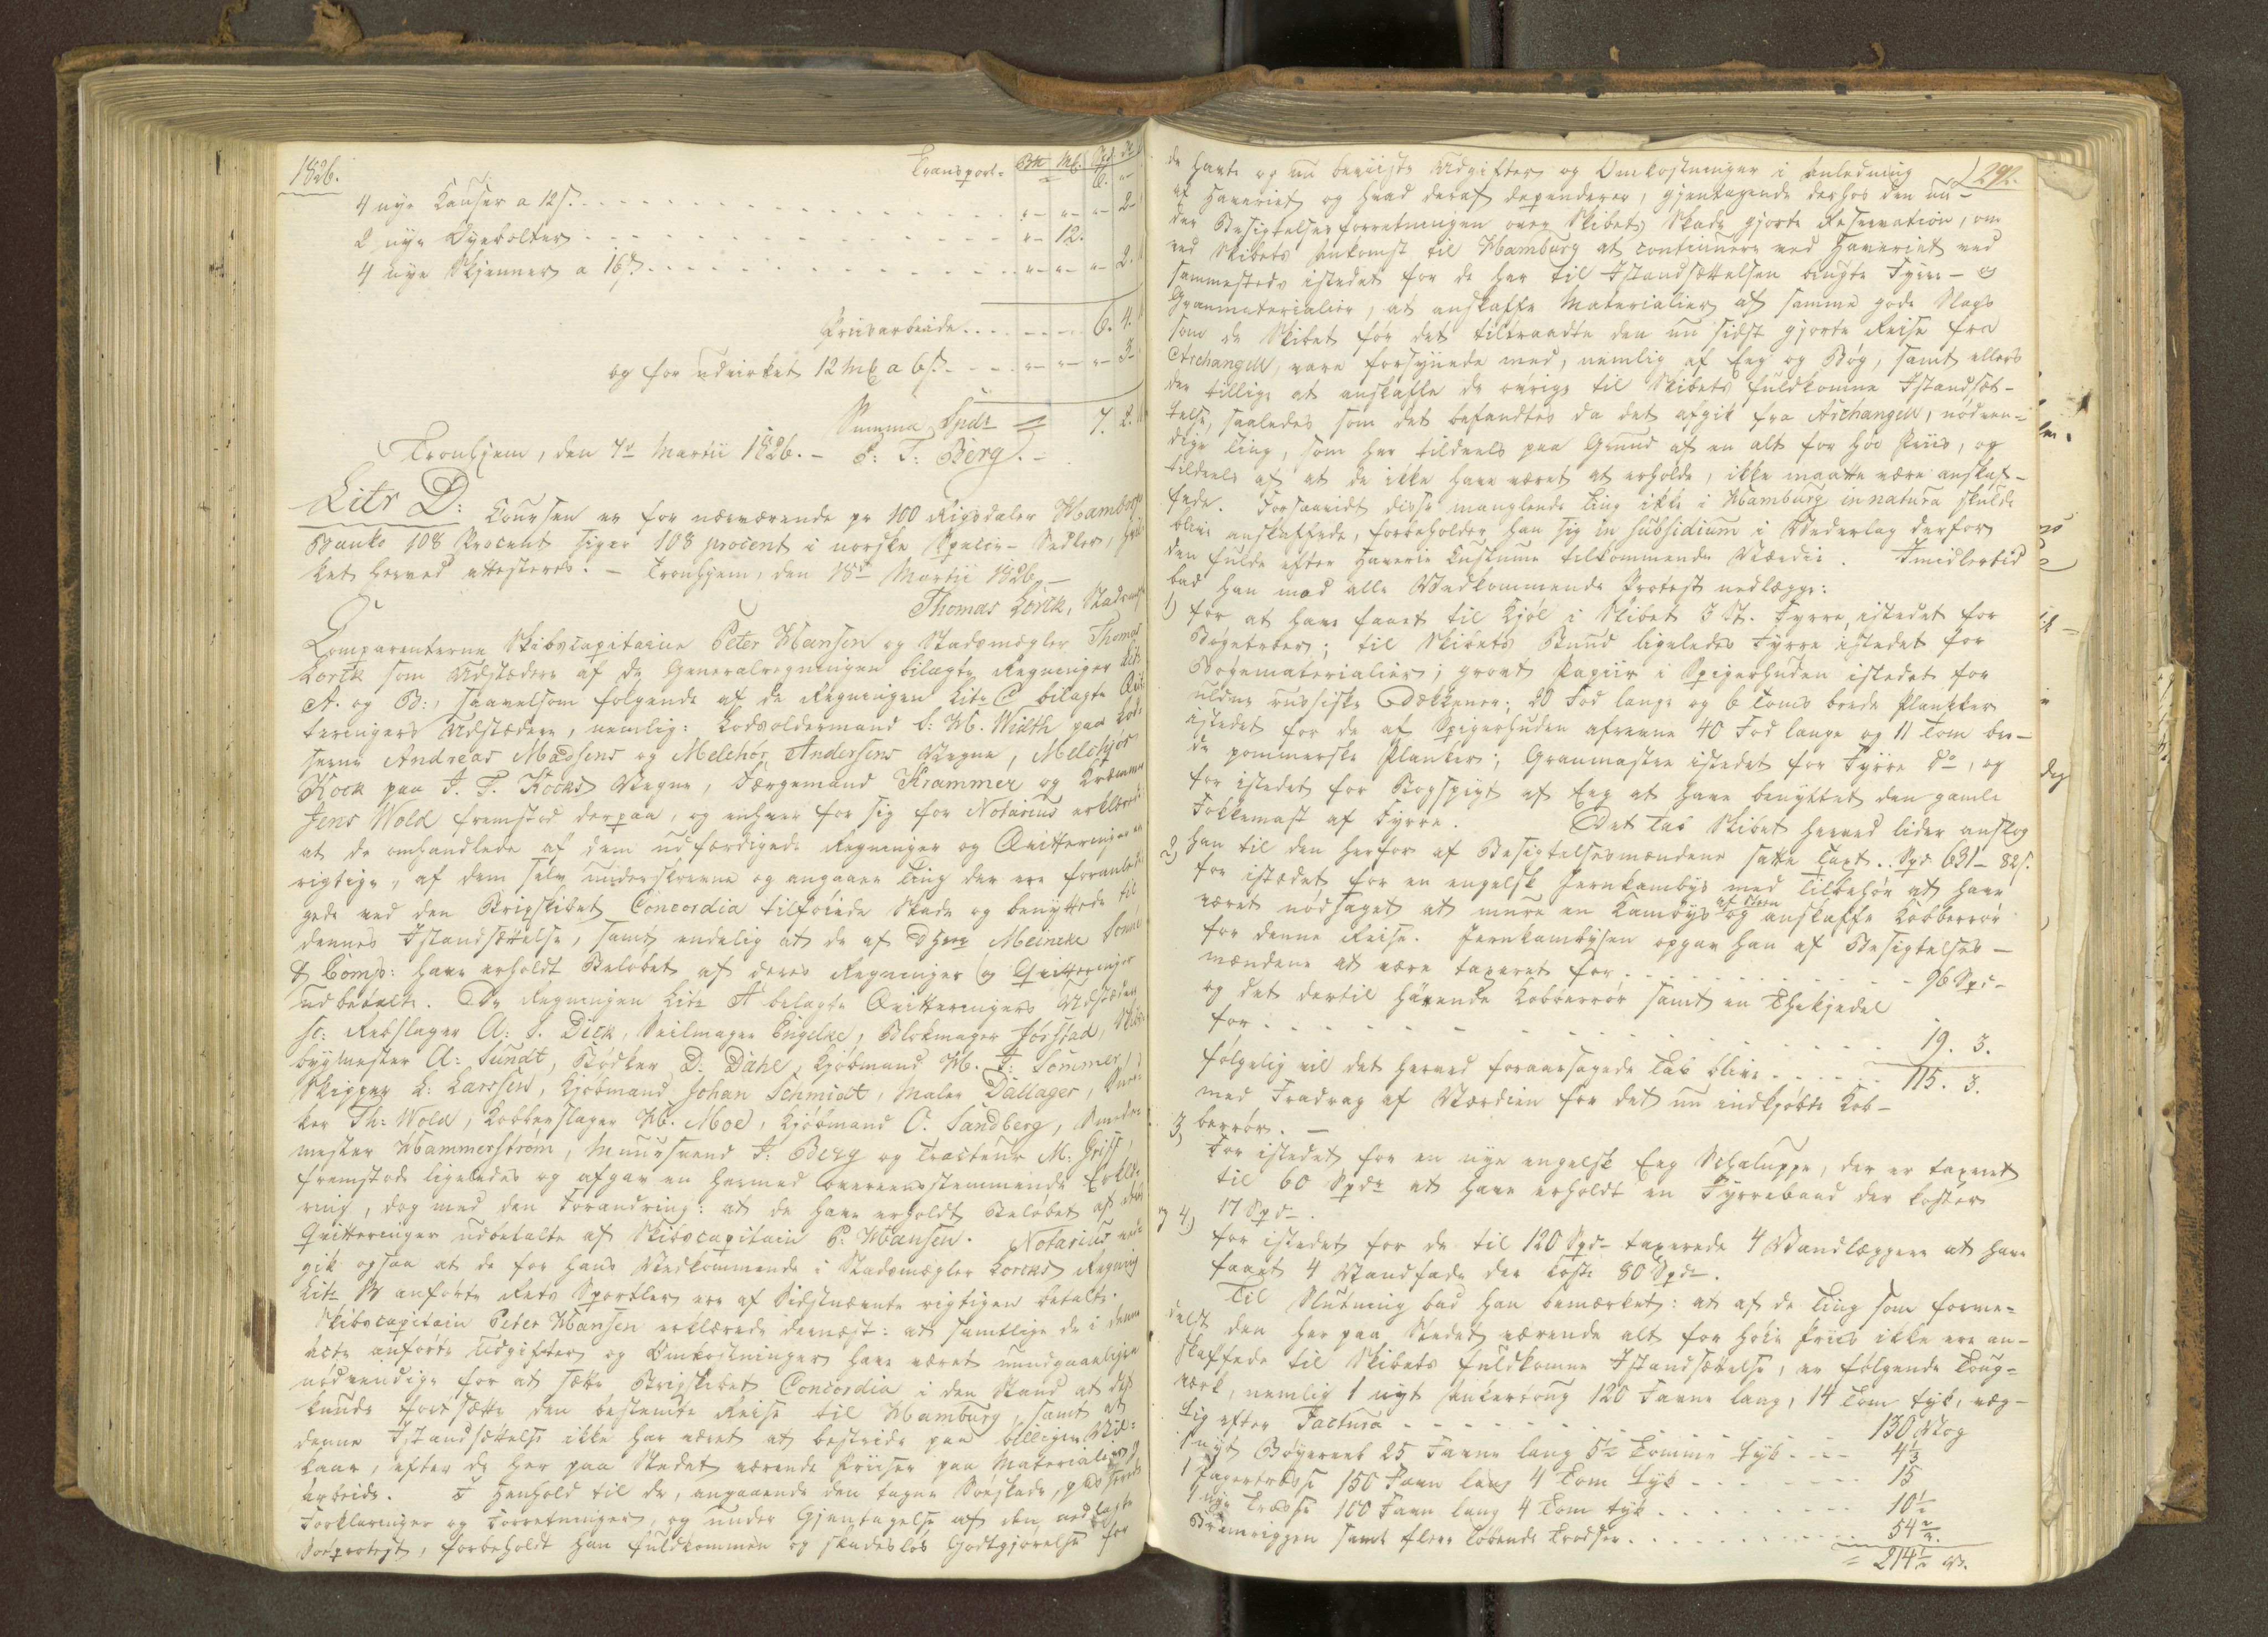 1826.
Transport = Btt Mk. Spd. ß
= 6. "-
4 nye Kauser a 12 s. - - - "- "- "- 2-
2 nye Øyebolter - - - "- 12.
4 nye Skjenner a 16 s. - - - "- "- "- 2.
Priisarbeide - - - 6. 4.
og for udvirket 12 Mk a 6 s. - - - "- "- "- 3-
Summa Spdr = 7. 2.
Tronhjem, den 7de Martii 1826. - P: T: Berg. -
Litr D: Coursen er for nærværende pr 100 Rigsdaler Hamborger
Banko 108 Procent siger 108 procent i norske Specie-Sedler, hvil-
ket herved attesteres. - Tronhjem, den 18de Martii 1826. -
Thomas Lorck, Stadsmægler
Comparenterne Skibscapitaine Peter Hansen og Stadsmægler Thomas
Lorck som Udstædere af de Generalregningen bilagte Regninger Litr
A. og B:, saavelsom følgende af de Regningen Litr C bilagte Qvit-
teringers Udstædere, nemlig: Lodsoldermand C: W. Width paa Lod-
serne Andreas Madsens og Melchior Andersens Vegne, Melchior
Kock paa J. F. Kocks Vegne, Færgemand Krammer og
Jens Wold fremstod derpaa, og enhver for sig for Notarius erklærede
at de omhandlede af dem udfærdigede Regninger og Qvitteringer ere
rigtige, af dem selv underskrevne og angaaer Ting der ere foranledi-
gede ved den Brigskibet Concordia tilføiede Skade og benyttede til
dennes Istandsættelse, samt endelig at de af DHerr Meincke Sønner
& Comp: have erholdt Beløbet af deres Regninger og Qvitteringer
udbetalt. De Regningen Litr A belagte Qvitteringers Udstædere
sc: Rebslager A: S. Dick, Seilmager Engelke, Blokmager Jørstad, Skibs-
bygmester A: Sundt, Bødker D: Dahl, Kjøbmand H. F: Sommer,
Skipper L: Larssen, Kjøbmand Johan Schmidt, Maler Dallager, Snee-
ker Th: Wold, Kobberslager H. Moe, Kjøbmand O. Sandberg, Smede-
mester Hammerstrøm, Muursvend J: Berg og Tracteur M: Griss,
fremstode ligeledes og afgav en hermed overeensstemmende Erklæ-
ring, dog med den Forandring: at de have erholdt Beløbet af deres
Qvitteringer udbetalte af Skibscapitain P. Hansen. Notarius ved-
gik ogsaa at de for hans Vedkommende i Stadsmægler Lorcks Regning
Litr B anførte Rets Sportler ere af Sidstnævnte rigtigen betalte.
Skibscapitain Peter Hansen erklærede dernæst: at samtlige de i denne
Acte anførte Udgifter og Omkostninger have været uundgaaeligen
nødvendige for at sætte Brigskibet Concordia i den Stand at det
kunde fortsætte den bestemte Reise til Hamburg, samt at
denne Istandsættelse ikke har været at bestride paa billigere Vil-
kaar, efter de her paa Stedet værende Priiser paa Materialier og
Arbeide. I Henhold til de, angaaende den tagne Søeskade, passerede
Forklaringer og Forretninger, og under Gjentagelse af den nedlagte
Søeprotest, forbeholdt han fuldkommen og skadesløs Godtgjørelse for
292.
de havte og nu beviiste Udgifter og Omkostninger i Anledning
af Haveriet og hvad deraf dependerer, gjentagende derhos den un-
der Besigtelsesforretningen over Skibets Skade gjorte Reservation, om
ved Skibets Ankomst til Hamburg at continuere ved Haveriet ved
sammesteds istedet for de her til Istandsættelsen brugte Fyrre- og
Granmaterialier, at anskaffe Materialier af samme gode Slags
som de Skibet for det tiltraadte den nu sidst gjorte Reise fra
Archangell, vare forsynede med, nemlig af Eeg og Bøg, samt ellers
der tillige at anskaffe de øvrige til Skibets fuldkomne Istandsæt-
telse, saaledes som det befandtes da det afgik fra Archangell, nødven-
dige Ting, som her tildeels paa Grund af en alt for høi Priis, og
tildeels af at de ikke have været at erholde, ikke maatte være anskaf-
fede. Forsaavidt disse manglende Ting ikke i Hamburg in natura skulde
blive anskaffede, forbeholder han sig in subsidium i Vederlag derfor
den fulde efter Haverie Custume tilkommende Værdie. Imidlertid
bad han mod alle Vedkommende Protest nedlægge:
1) for at have faaet til Kjøl i Skibet 3 St. Fyrre, istedet for
Bøgetræer; til Skibets Bund ligeledes Fyrre istedet for
Bøgematerialier; groat Papiir i Spigerhuden istedet for
uldne russiske Dækkener; 20 Fod lange og 6 Toms brede Planker
istedet for de af Spigerhuden afrevne 40 Fod lange og 11 Tom bre-
de pommerske Planker; Granmaster istedet for Fyrre do, og
for istedet for Bogspryt af Eeg at have benyttet den gamle
Fokkemast af Fyrre. Det Tab Skibet herved lider anslog
han til den herfor af Besigtelsesmændene satte Taxt. Spd 631- 82 s.
2) for istædet for en engelsk Jernkambys med Tilbehør at have
været nødsaget at mure en Kambys af Steen og anskaffe Kobberrør
for denne Reise. Jernkambysen opgav han af Besigtelses-
mændene at være taxeret for - - - 96 Spd-
og det dertil hørende Kobberrør samt en Theekjedel
for - - - 19. 3.
følgelig vil det herved foraarsagede Tab blive - - - 115. 3.
med Fradrag af Værdien for det nu indkjøbte Kob-
berrør. -
3) For istedet for en nye engelsk Eeg Schaluppe, der er taxeret
til 60 Spdr at have erholdt en Fyrrebaad der koster
17 Spd-.
4) for istedet for de til 120 Spd- taxerede 4 Vandlæggere at have
faaet 4 Vandfade der koste 80 Spd-.
Til Slutning bad han bemærket: at af de Ting som forme-
delst den her paa Stedet værende alt for høie Priis ikke ere an-
skaffede til Skibets fuldkomne Istandsættelse, er følgende Toug-
værk, nemlig 1 nyt Ankertoug 120 Favne lang, 14 Tom tyk, væg-
tig efter Factura - - - 130 Vog
1 nyt Bøyereeb 25 Favne lang 5½ Tomme tyk - - - 4⅓
1 Pagertrosse 150 Favn lang 4 Tom tyk - - - 15
1 nye Trosse 100 Favn lang 4 Tom tyk - - - 10½
Bramriggen samt flere løbende Trodser - - - 54⅔
= 214½ V.